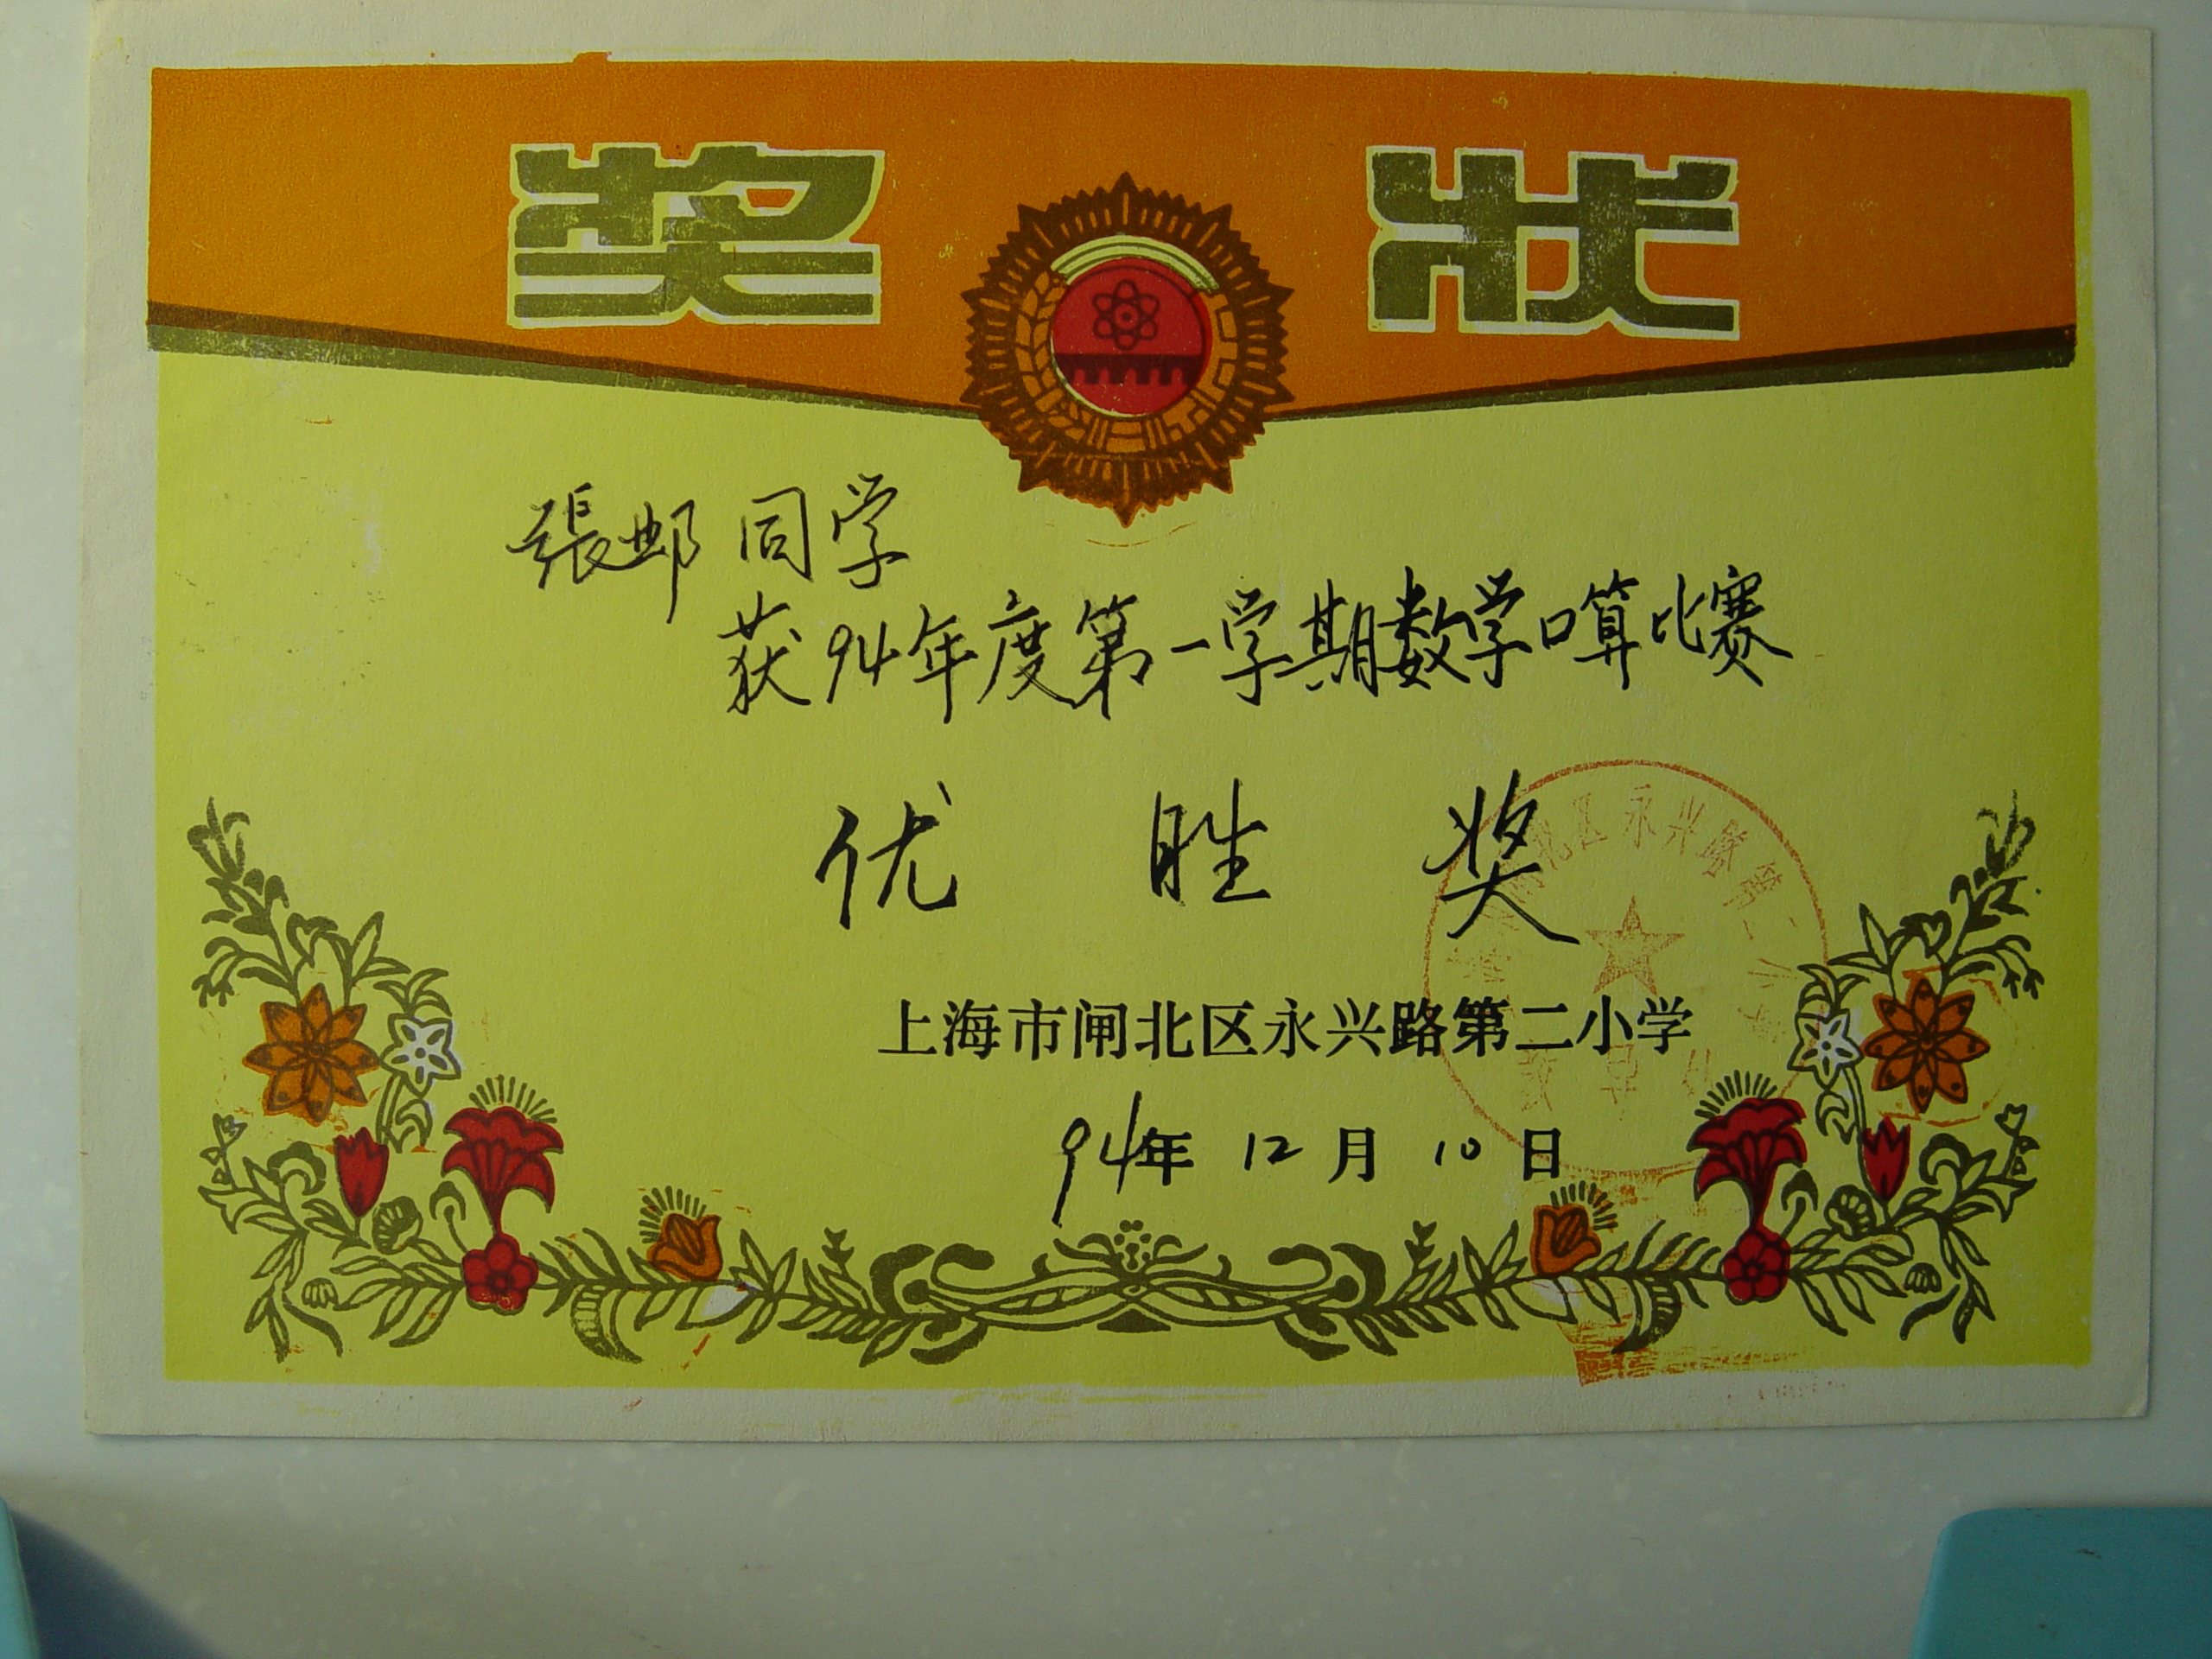 奖状
張邮同学
获94年度第一学期数学口算比赛
优胜奖
上海市闸北区永兴路第二小学
94年12月10日
北区永兴路第二小